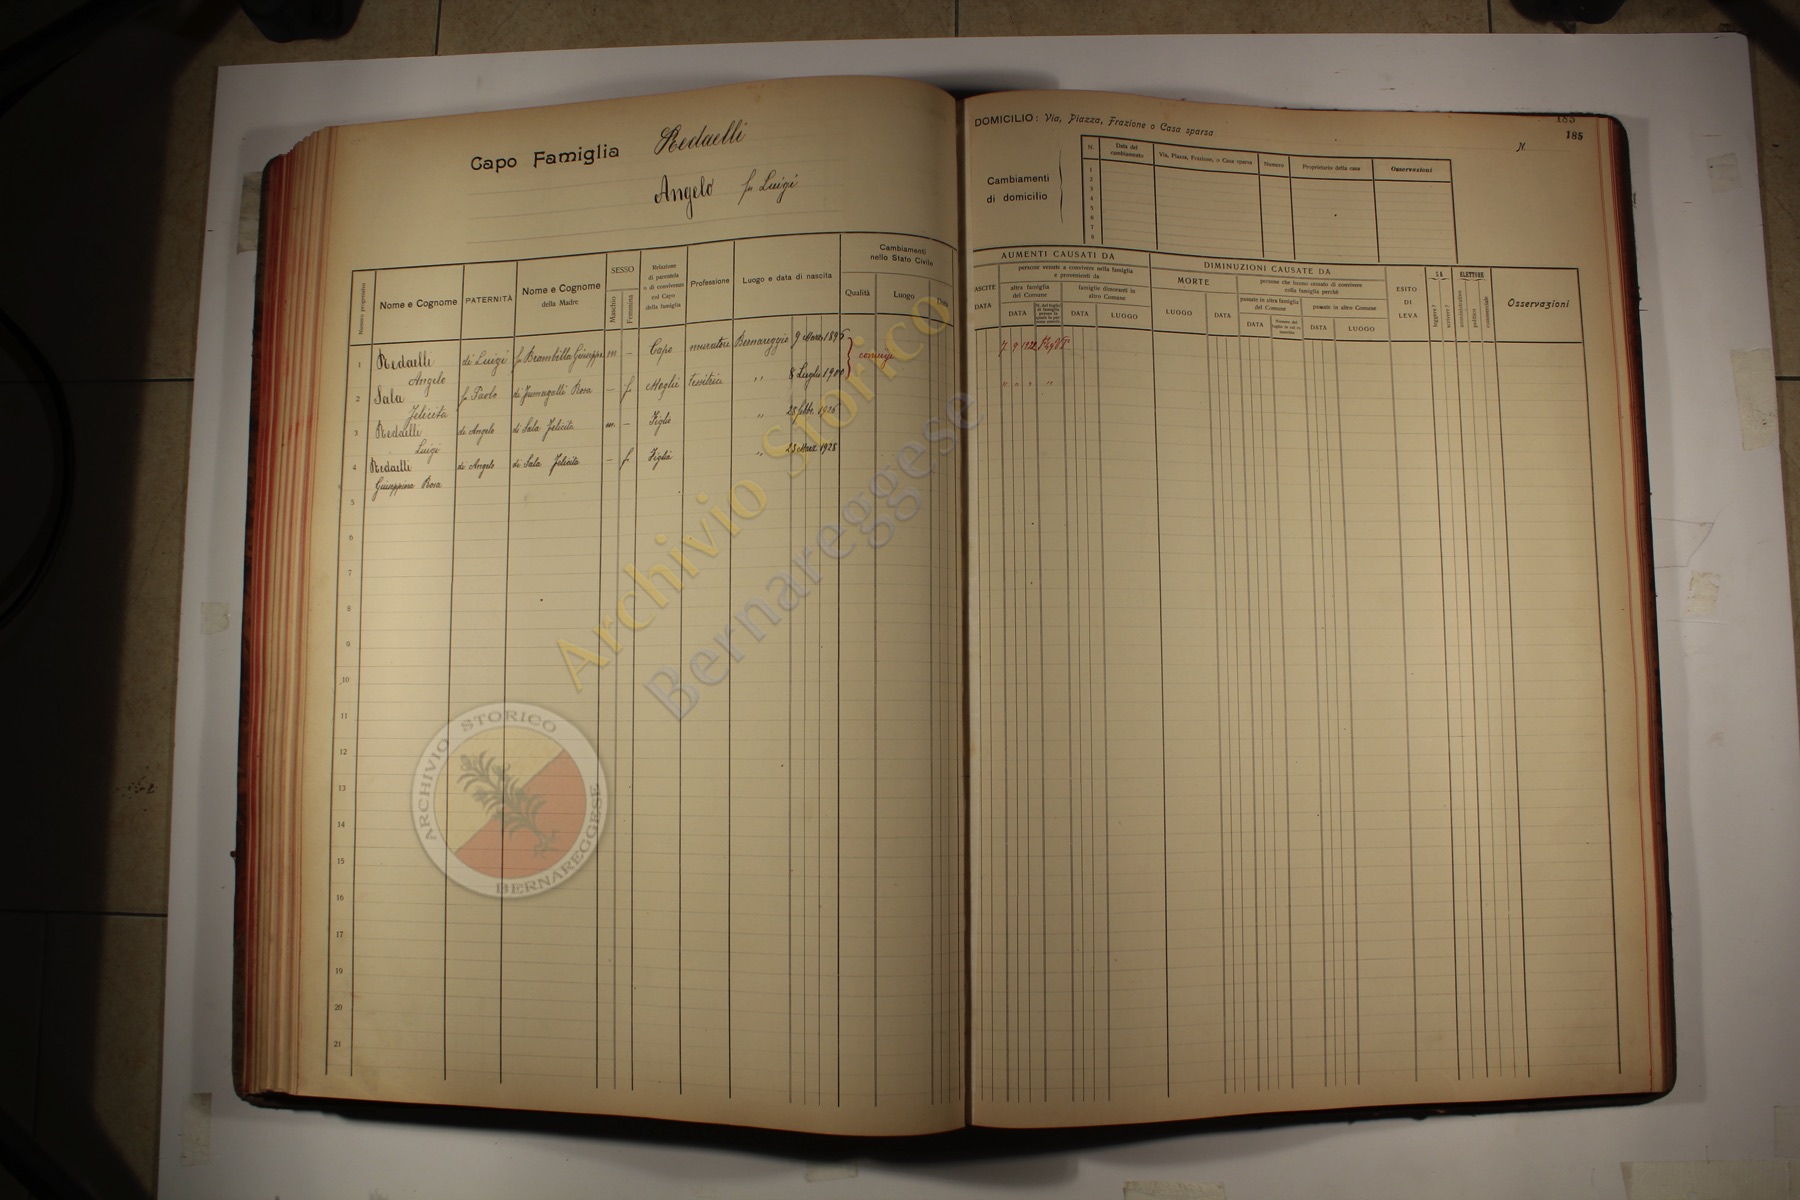 Capo Famiglia Redaelli
Angelo fu Luigi
Numero progressivo
Nome e Cognome
PATERNITÀ
Nome e Cognome
della Madre
SESSO
Maschio
Femmina
Relazione
di parentela
o di convivenza
col Capo
della famiglia
Professione
Luogo e data di nascita
Cambiamenti
nello Stato Civile
Qualità
Luogo
Data
1 Redaelli di Luigi fu Brambilla Giuseppa m - Capo muratore Bernareggio 9 Marzo 1896 coniugi
Angelo
2 Sala fu Paolo di Fumagalli Rosa - f Moglie Tessitrice " 8 Luglio 1900
Felicita
3 Redaelli di Angelo di Sala Felicita m. - Figlio " 28 febb. 1926
Luigi
4 Redaelli di Angelo di Sala Felicita - f Figlia " 23 Marz. 1928
Giuseppina Rosa
5
6
7
8
9
10
11
12
13
14
15
16
17
19
20
21
DOMICILIO: Via, Piazza, Frazione o Casa sparsa
185
185
N.
Cambiamenti
di domicilio
N.
Data del
cambiamento
Via, Piazza, Frazione, o Casa sparsa
Numero
Proprietario della casa
Osservazioni
1
2
3
4
5
6
7
8
AUMENTI CAUSATI DA
NASCITE
DATA
persone venute a convivere nella famiglia
e provenienti da
altra famiglia
del Comune
DATA
famiglie dimoranti in
altro Comune
DATA
LUOGO
DIMINUZIONI CAUSATE DA
MORTE
LUOGO
DATA
persone che hanno cessato di convivere
colla famiglia perchè
passate in altra famiglia
del Comune
DATA
passate in altro Comune
DATA
LUOGO
ESITO
DI
LEVA
SA
leggere?
scrivere?
ELETTORE
amministrativo
politico
commerciale
Osservazioni
" " " "
Archivio Storico
Bernareggese
ARCHIVIO STORICO
BERNAREGGESE